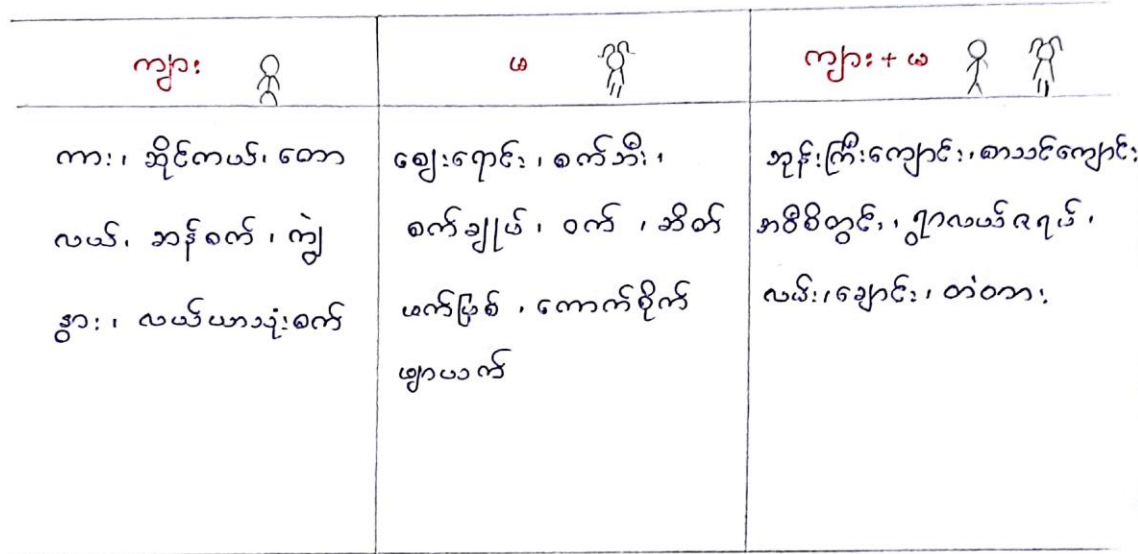 ကျား
ကား၊ ဆိုင်ကယ်၊ တော
လယ်၊ ဆန်စက်၊ ကျွဲ
နွား၊ လယ်ယာသုံးစက်
မ
ဈေးရောင်း၊ စက်ဘီး၊
စက်ချုပ်၊ ဝက်၊ ဆိတ်
ကောက်စိုက်
ကျား + မ
ဘုန်းကြီးကျောင်း၊ စာသင်ကျောင်း
အဝီစိတွင်း၊ ရွာလယ်ဇရပ်၊
လမ်း၊ ချောင်း၊ တံတား